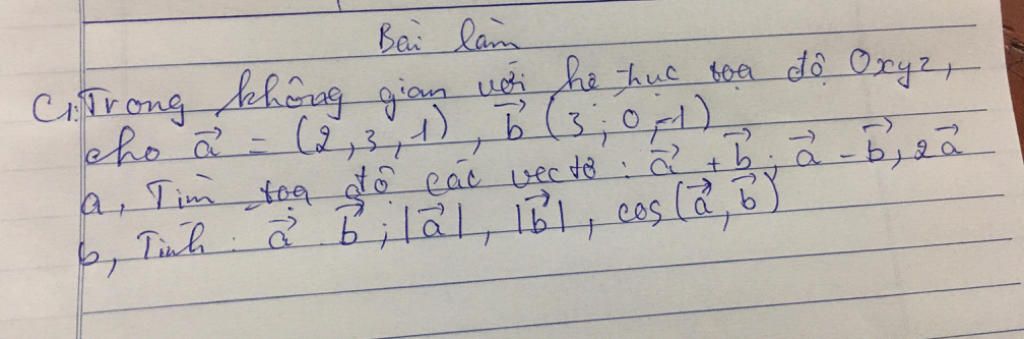 Bài làm
C1: Trong không gian với hệ trục tọa độ Oxyz,
cho a⃗ = (2, 3, 1), b⃗ (3; 0, -1)
a, Tìm tọa độ các vectơ: a⃗ + b⃗; a⃗ - b⃗, 2a⃗
b, Tính: a⃗ b⃗; |a⃗|, |b⃗|, cos(a⃗, b⃗)